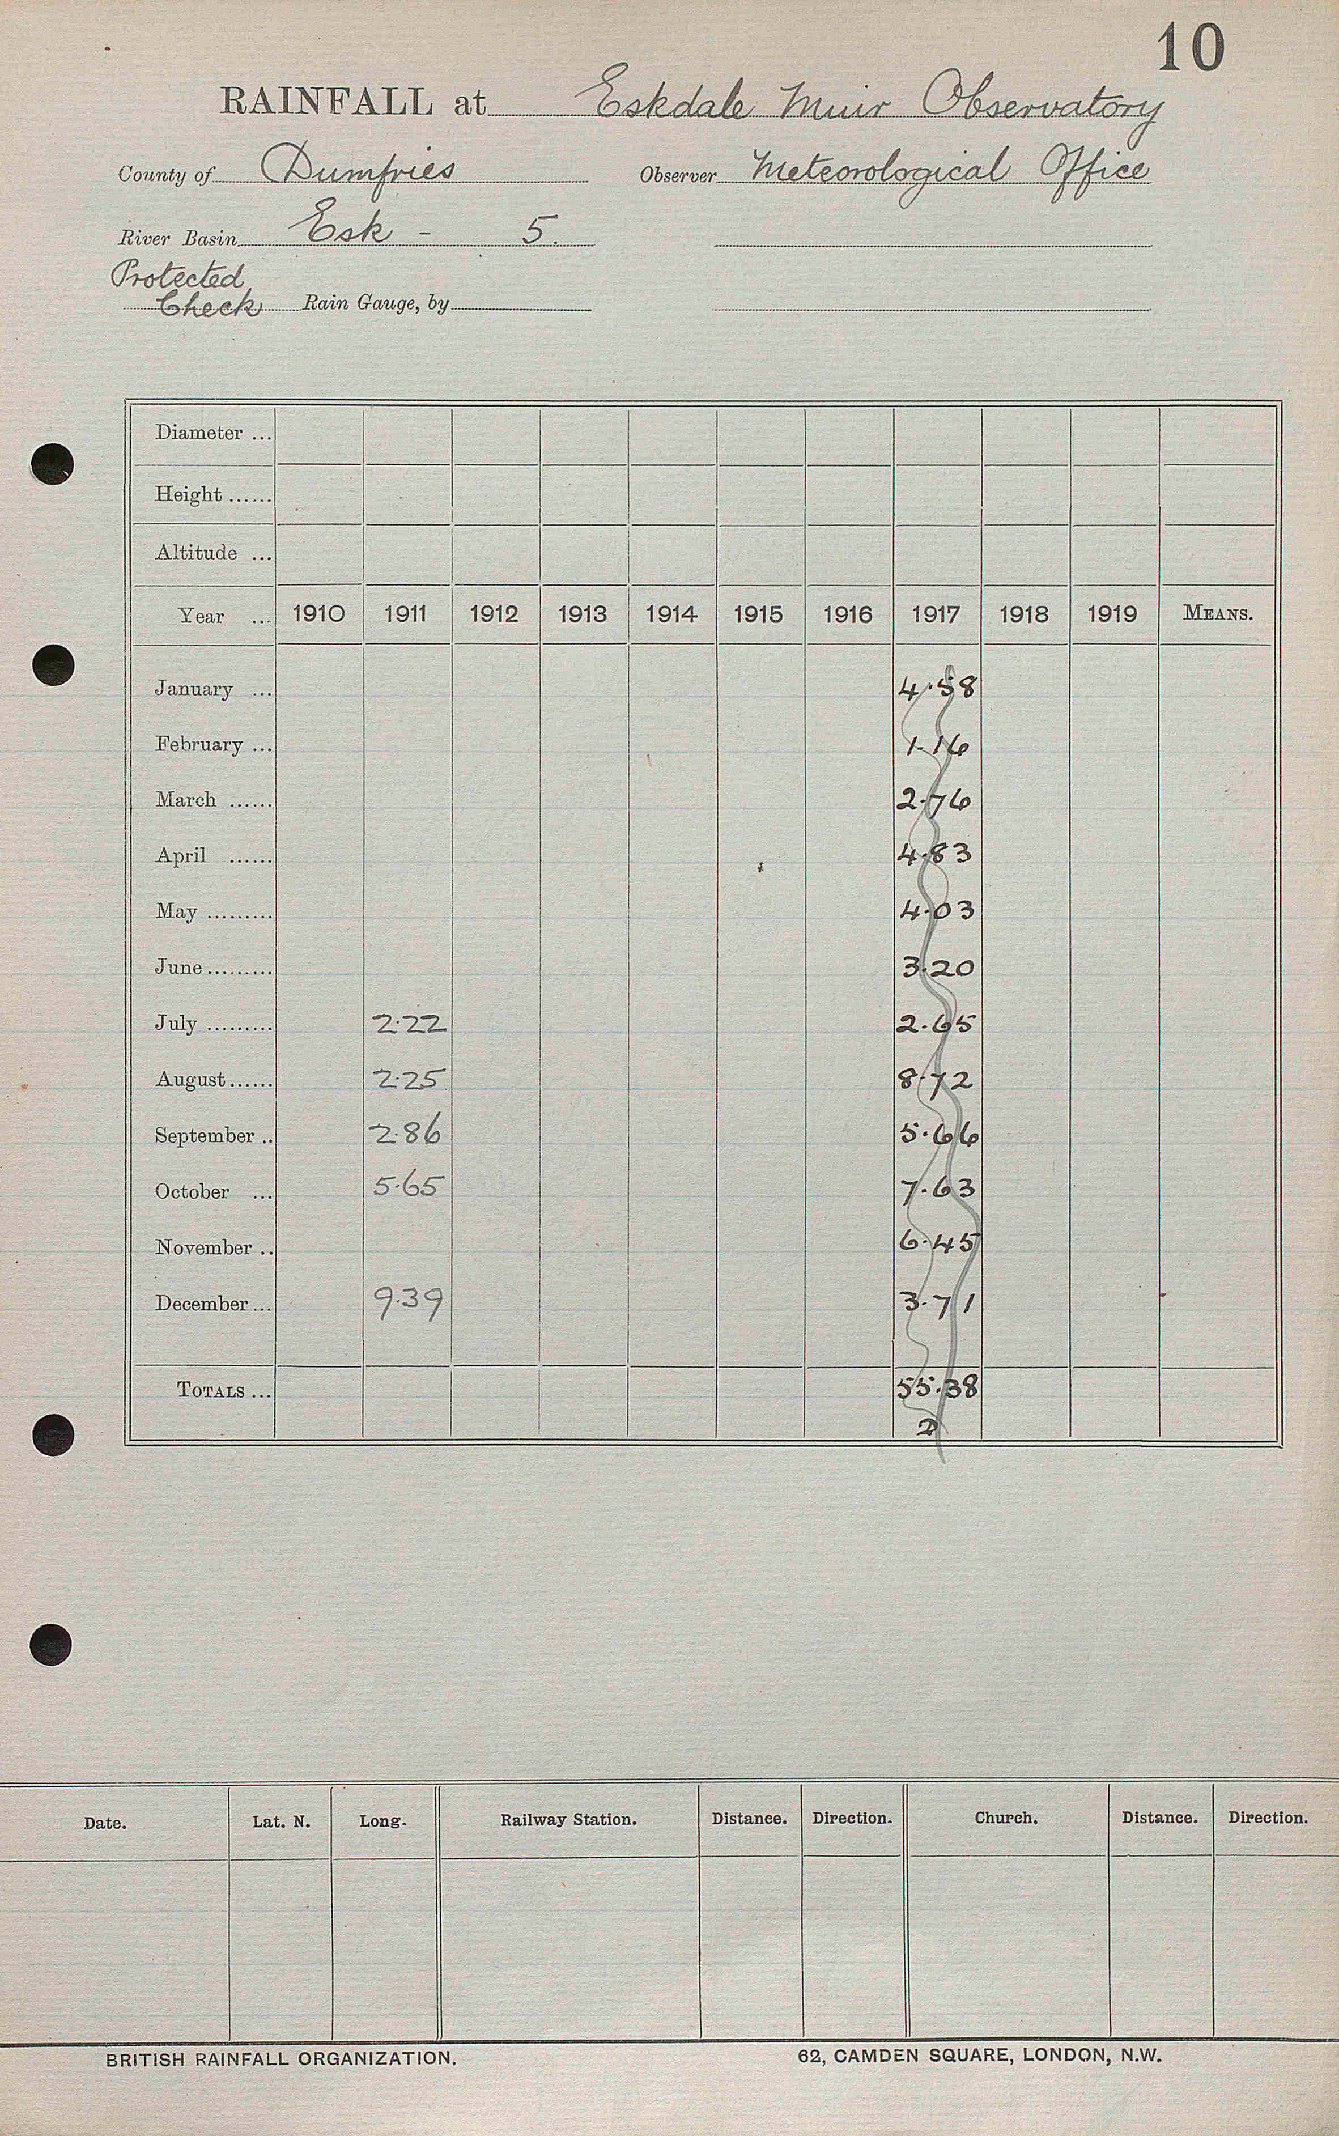 10
RAINFALL at Eskdale Muir Observatory
County of Dumfries Observer Meteorological Office
River Basin Esk - 5.
Protected
Check Rain Gauge, by
Diameter ...
Height ......
Altitude ...
Year ... 1910 1911 1912 1913 1914 1915 1916 1917 1918 1919 MEANS.
January ... 4.58
February ... 1.16
March ...... 2.76
April ...... 4.83
May ......... 4.03
June ......... 3.20
July ......... 2.22 2.65
August ...... 2.25 8.72
September .. 2.86 5.66
October ... 5.65 7.63
November .. 6.45
December ... 9.39 3.71
TOTALS ... 55.38
2
Date. Lat. N. Long. Railway Station. Distance. Direction. Church. Distance. Direction.
BRITISH RAINFALL ORGANIZATION. 62, CAMDEN SQUARE, LONDON, N.W.